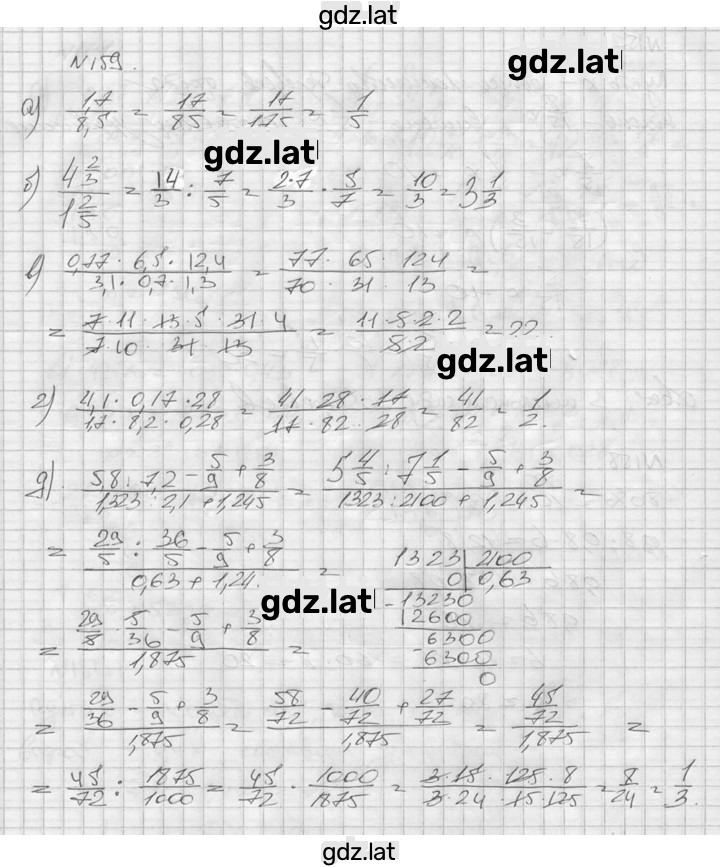 gdz.lat
N159.
gdz.lat
а) 1,7/8,5 = 17/85 = 17/175 = 1/5
gdz.lat
б) 4 2/3 / 1 2/5 = 14/3 : 7/5 = 2·7/3 · 5/7 = 10/3 = 3 1/3
в) 0,77 · 6,5 · 12,4 / 3,1 · 0,7 · 1,3 = 77 · 65 · 124 / 70 · 31 · 13 =
= 7·11 · 13·5 · 31·4 / 7·10 · 31 · 13 = 11·5·2·2 / 5·2 = 22.
gdz.lat
г) 4,1 · 0,17 · 28 / 1,7 · 8,2 · 0,28 = 41 · 28 · 17 / 17 · 82 · 28 = 41/82 = 1/2.
д) 5,8 : 7,2 - 5/9 + 3/8 / 1,323 : 2,1 + 1,245 = 5 4/5 : 7 1/5 - 5/9 + 3/8 / 1323 : 2100 + 1,245 =
= 29/5 : 36/5 - 5/9 + 3/8 / 0,63 + 1,24. =
1323 2100
0 0,63
-13230
12600
6300
-6300
0
gdz.lat
= 29/5 · 5/36 - 5/9 + 3/8 / 1,875 =
= 29/36 - 5/9 + 3/8 / 1,875 = 58/72 - 40/72 + 27/72 / 1,875 = 45/72 / 1,875 =
= 45/72 : 1875/1000 = 45/72 · 1000/1875 = 3·15 · 125 · 8 / 3·24 · 15·125 = 8/24 = 1/3.
gdz.lat